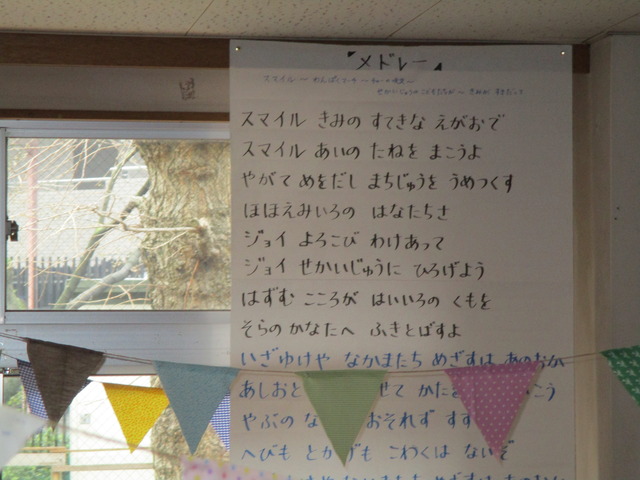 「メドレー」
スマイル きみの すてきな えがおで
スマイル あいの たねを まこうよ
やがて めをだし まちじゅうを うめつくす
ほほえみいろの はなたちさ
ジョイ よろこび わけあって
ジョイ せかいじゅうに ひろげよう
はずむ こころが はいいろの くもを
そらの かなたへ ふきとばすよ
いざゆけや なかまたち めざすは あのおか
あしおと せて かた こう
やぶの な おそれず すす
へびも とかげも こわくは ないぞ